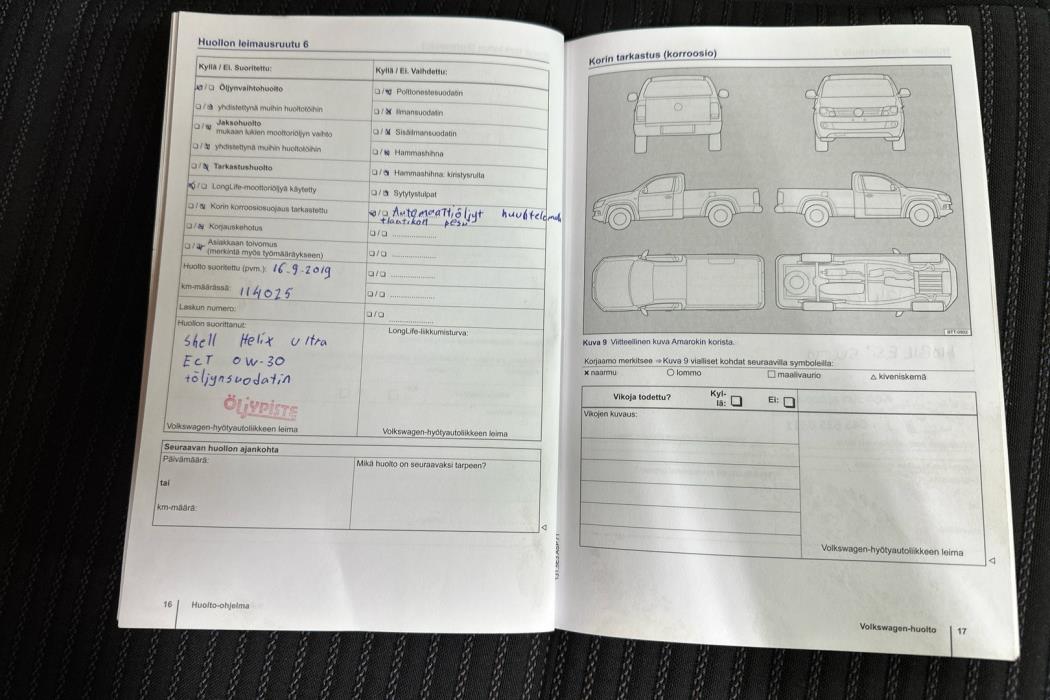 Huollon leimausruutu 6
Kyllä / Ei. Suoritettu:
Öljynvaihtohuolto
yhdistettynä muihin huoltotöihin
Jaksohuolto
mukaan lukien moottoriöljyn vaihto
yhdistettynä muihin huoltotöihin
Tarkastushuolto
LongLife-moottoriöljyä käytetty
Korin korroosiosuojaus tarkastettu
Korjauskehotus
Asiakkaan toivomus
(merkintä myös työmääräykseen)
Huolto suoritettu (pvm.): 16.9.2019
km-määrässä: 114025
Laskun numero:
Huollon suorittanut:
Shell Helix Ultra
ECT 0W-30
+öljynsuodatin
ÖLJYPISTE
Volkswagen-hyötyautoliikkeen leima
Kyllä / Ei. Vaihdettu:
Polttonestesuodatin
Ilmansuodatin
Sisäilmansuodatin
Hammashihna
Hammashihna: kiristysrulla
Sytytystulpat
Automaattiöljyt huuhtelemalla
+laatikon pesu
LongLife-liikkumisturva:
Volkswagen-hyötyautoliikkeen leima
Seuraavan huollon ajankohta
Päivämäärä:
tai
km-määrä:
Mikä huolto on seuraavaksi tarpeen?
16 Huolto-ohjelma
Korin tarkastus (korroosio)
Kuva 9 Viitteellinen kuva Amarokin korista.
Korjaamo merkitsee ⇒ Kuva 9 vialliset kohdat seuraavilla symboleilla:
× naarmu ○ lommo □ maalivaurio △ kiveniskemä
Vikoja todettu? Kyl-
lä: Ei:
Vikojen kuvaus:
Volkswagen-hyötyautoliikkeen leima
Volkswagen-huolto 17